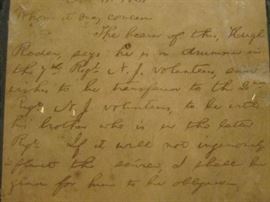 Whom it may concern
The bearer of this, Hugh
Roden, says he is a drummer in
the 7th Regt N. J. Volunteers, and
wishes to be transferred to the 2nd
Regt N. J. Volunteers, to be with
his brother who is in the latter
Regt. If it will not injuriously
affect the service, I shall be
glad for him to be obliged